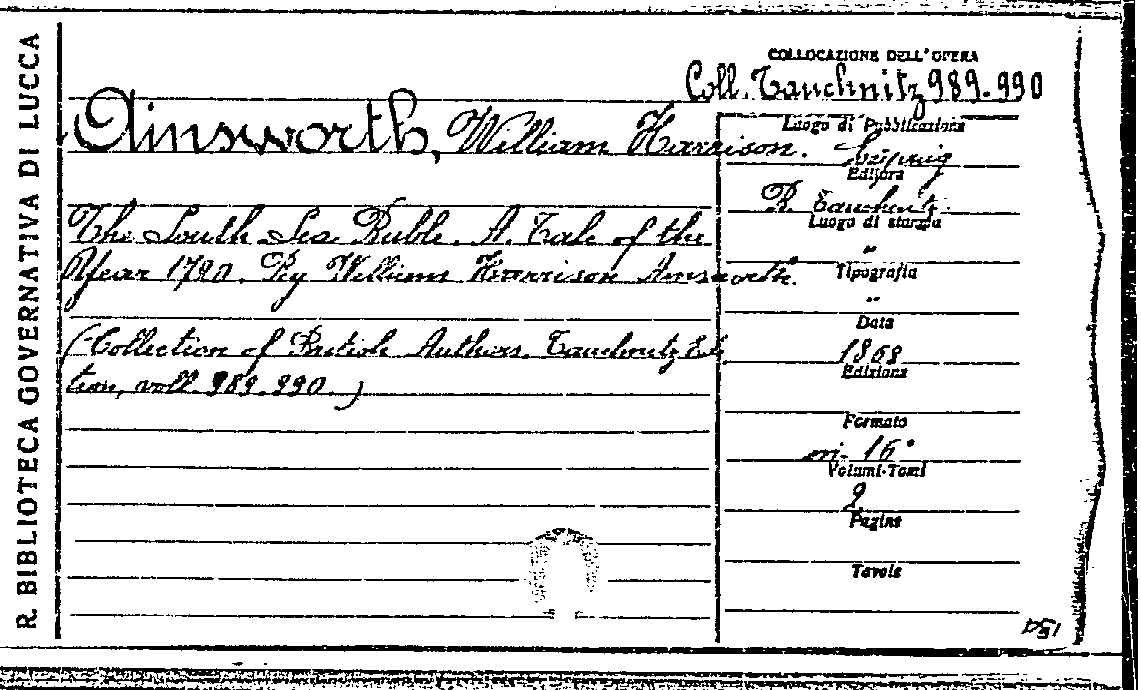 R. BIBLIOTECA GOVERNATIVA DI LUCCA
COLLOCAZIONE DELL'OPERA
Coll. Tauchnitz 989-990
Ainsworth, William Harrison.
The South Sea Buble. A Tale of the
Year 1720. By William Harrison Ainsworth.
(Collection of British Authors. Tauchnitz Edi
tion, voll. 989-990.)
Luogo di Pubblicazione
Leipzig
Editore
B. Tauchnitz
Luogo di stampa
"
Tipografia
"
Data
1868
Edizione
Formato
in-16°
Volumi-Tomi
2
Pagine
Tavole